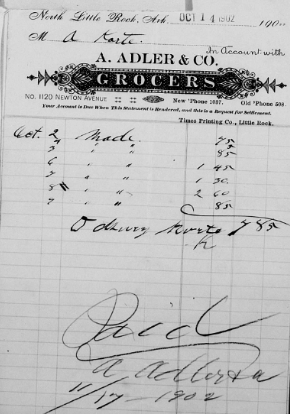 North Little Rock, Ark OCT 14 1902 190
M A Korte.
In Account with
A. ADLER & CO.
GROCERS
NO. 1120 NEWTON AVENUE New 'Phone 1657. Old 'Phone 508
Your Account is Due When This Statement is Rendered, and this is a Request for Settlement.
Times Printing Co., Little Rock.
Oct. 2 Made 75
3 " " 85
6 " " 1 45
7 " " 1 30
8 " " 2 60
9 " " 85
Korte 7 85
Paid
A Adler & Co
11/17 - 1902